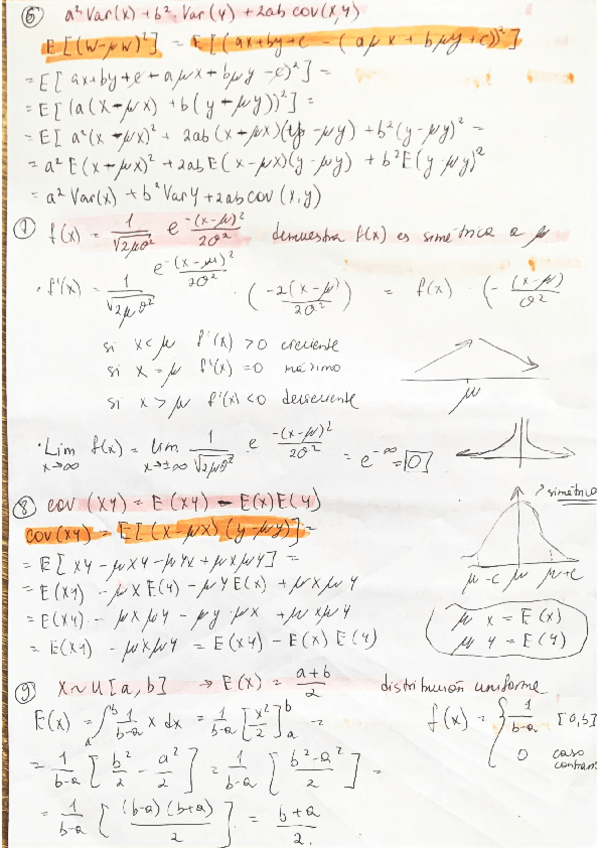 ⑥ a² Var(x) + b² Var(y) + 2ab cov(x,y)
E[(W-μw)²] = E[(ax+by+c - (aμx + bμy+c))²]
= E[ax+by+c - aμx + bμy - c)²] =
= E[(a(x-μx) + b(y-μy))²] =
= E[a²(x-μx)² + 2ab(x-μx)(y-μy) + b²(y-μy)² =
= a² E(x-μx)² + 2ab E(x-μx)(y-μy) + b² E(y-μy)²
= a² Var(x) + b² Var y + 2ab cov(x,y)
⑦ f(x) = 1/√2μσ² e -(x-μ)²/2σ² demuestra f(x) es simétrica a μ
· f'(x) = 1/√2μσ² e -(x-μ)²/2σ² · (-2(x-μ)/2σ²) = f(x) · (- (x-μ)/σ²
si x<μ f'(x) >0 creciente
si x=μ f'(x) =0 máximo
si x>μ f'(x) <0 decreciente
μ
· Lim x→∞ f(x) = lim x→±∞ 1/√2μσ² e -(x-μ)²/2σ² = e^-∞ = [0]
⑧ cov(xy) = E(xy) - E(x)E(y)
simétrica
cov(xy) = E[(x-μx)(y-μy)] =
= E[xy - μxy - μyx + μxμy] =
μ-c μ μ+c
= E(xy) - μx E(y) - μy E(x) + μxμy
= E(xy) - μxμy - μy·μx + μxμy
= E(xy) - μxμy = E(xy) - E(x)E(y)
μx = E(x)
μy = E(y)
⑨ x~U[a,b] → E(x) = a+b/2 distribución uniforme
E(x) = ∫ₐᵇ 1/b-a x dx = 1/b-a [x²/2]ₐᵇ = f(x) = { 1/b-a [a,b]
0 caso contrar
= 1/b-a [b²/2 - a²/2] = 1/b-a [b²-a²/2] =
= 1/b-a [(b-a)(b+a)/2] = b+a/2.